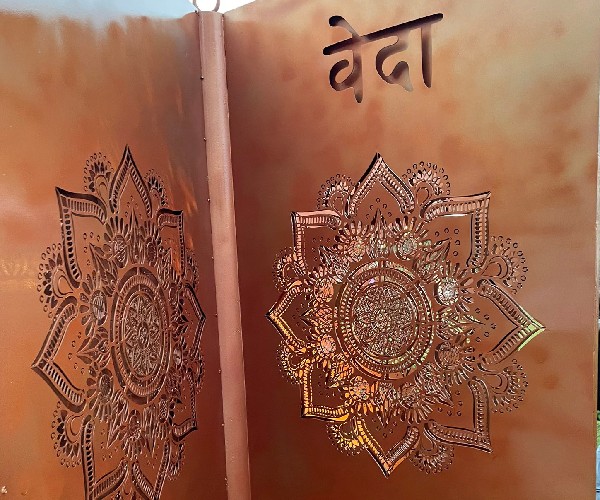 वेदा